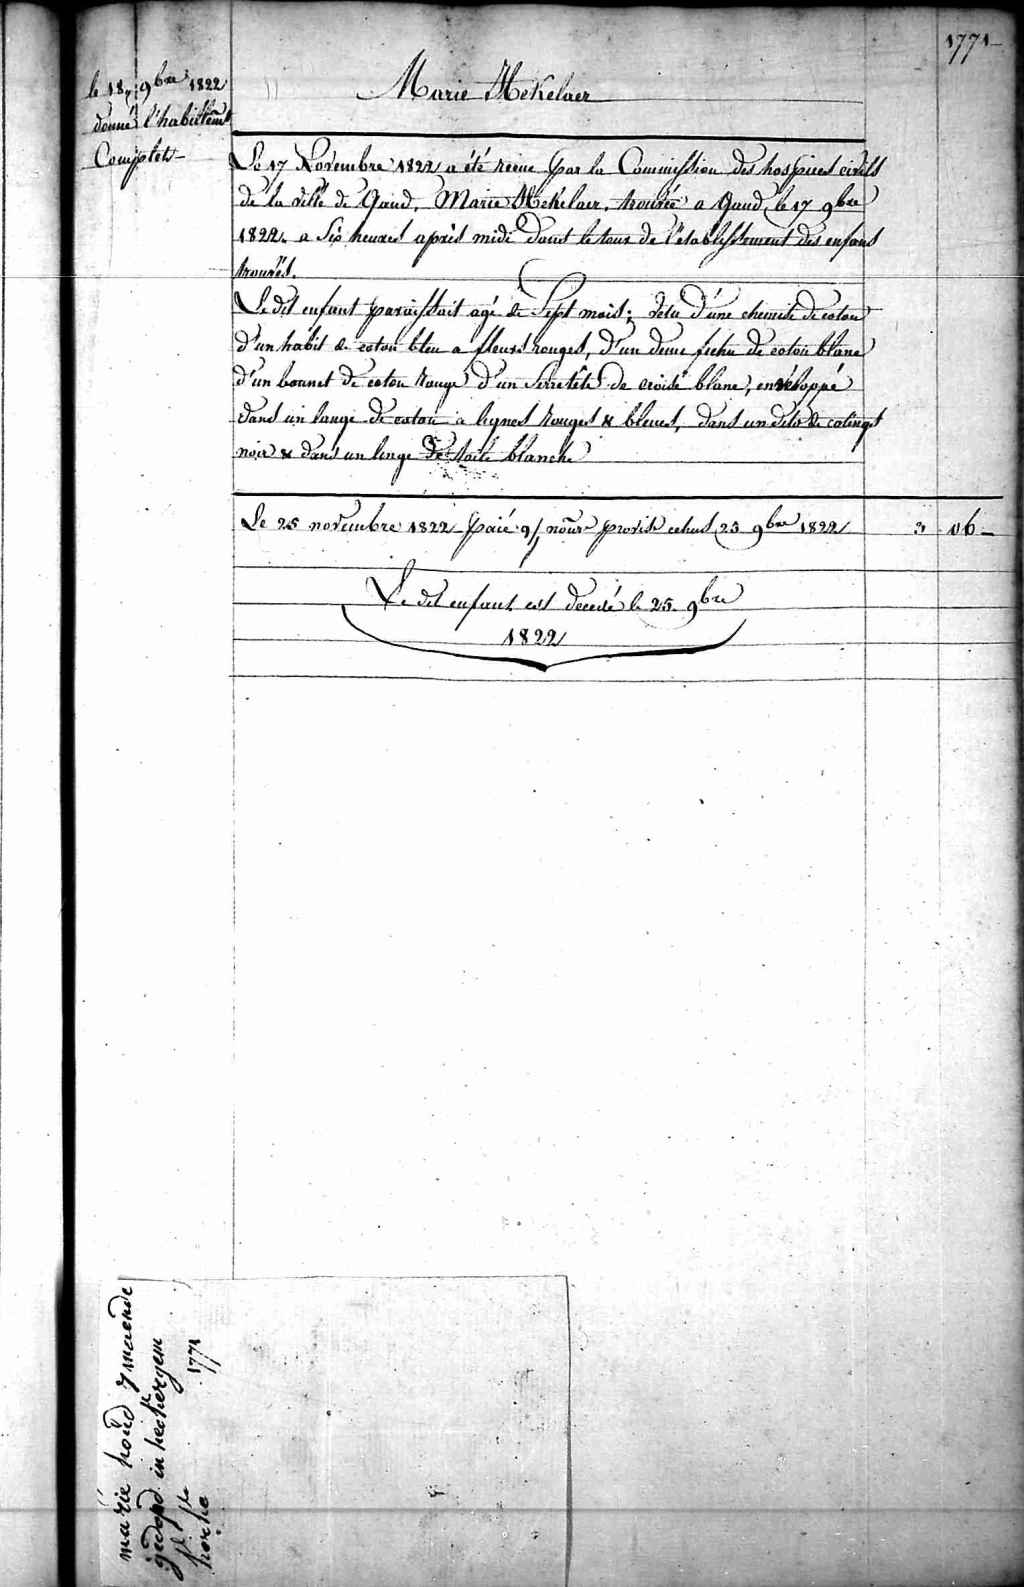 1771
le 18, 9bre 1822
donné l'habillemt
Complet
Marie Hekelaer
Le 17 Novembre 1822 a été recue par la Commission des hospices civils
de la ville de Gand, Marie Hekelaer, trouvée a Gand, le 17 9bre
1822. a Six heures après midi dans le tour de l'etablissement des enfans
trouvés.
Le dit enfant paraissait agé de Sept mois; vetu d'une chemise de coton
d'un habit de coton bleu a fleurs rouges, d'un demi fichu de coton blanc
d'un bonnet de coton rouge d'un Serretête de croisé blanc, enveloppé
dans un lange de coton a lignes rouges & bleues, dans un de calings
noir & dans un linge de toile blanche
Le 25 novembre 1822 paié provis 23 9bre 1822 3 06
Le dit enfant est decedé le 25. 9bre
1822
marie houd 7 maende
gedopd in hechergem
kerke
1771